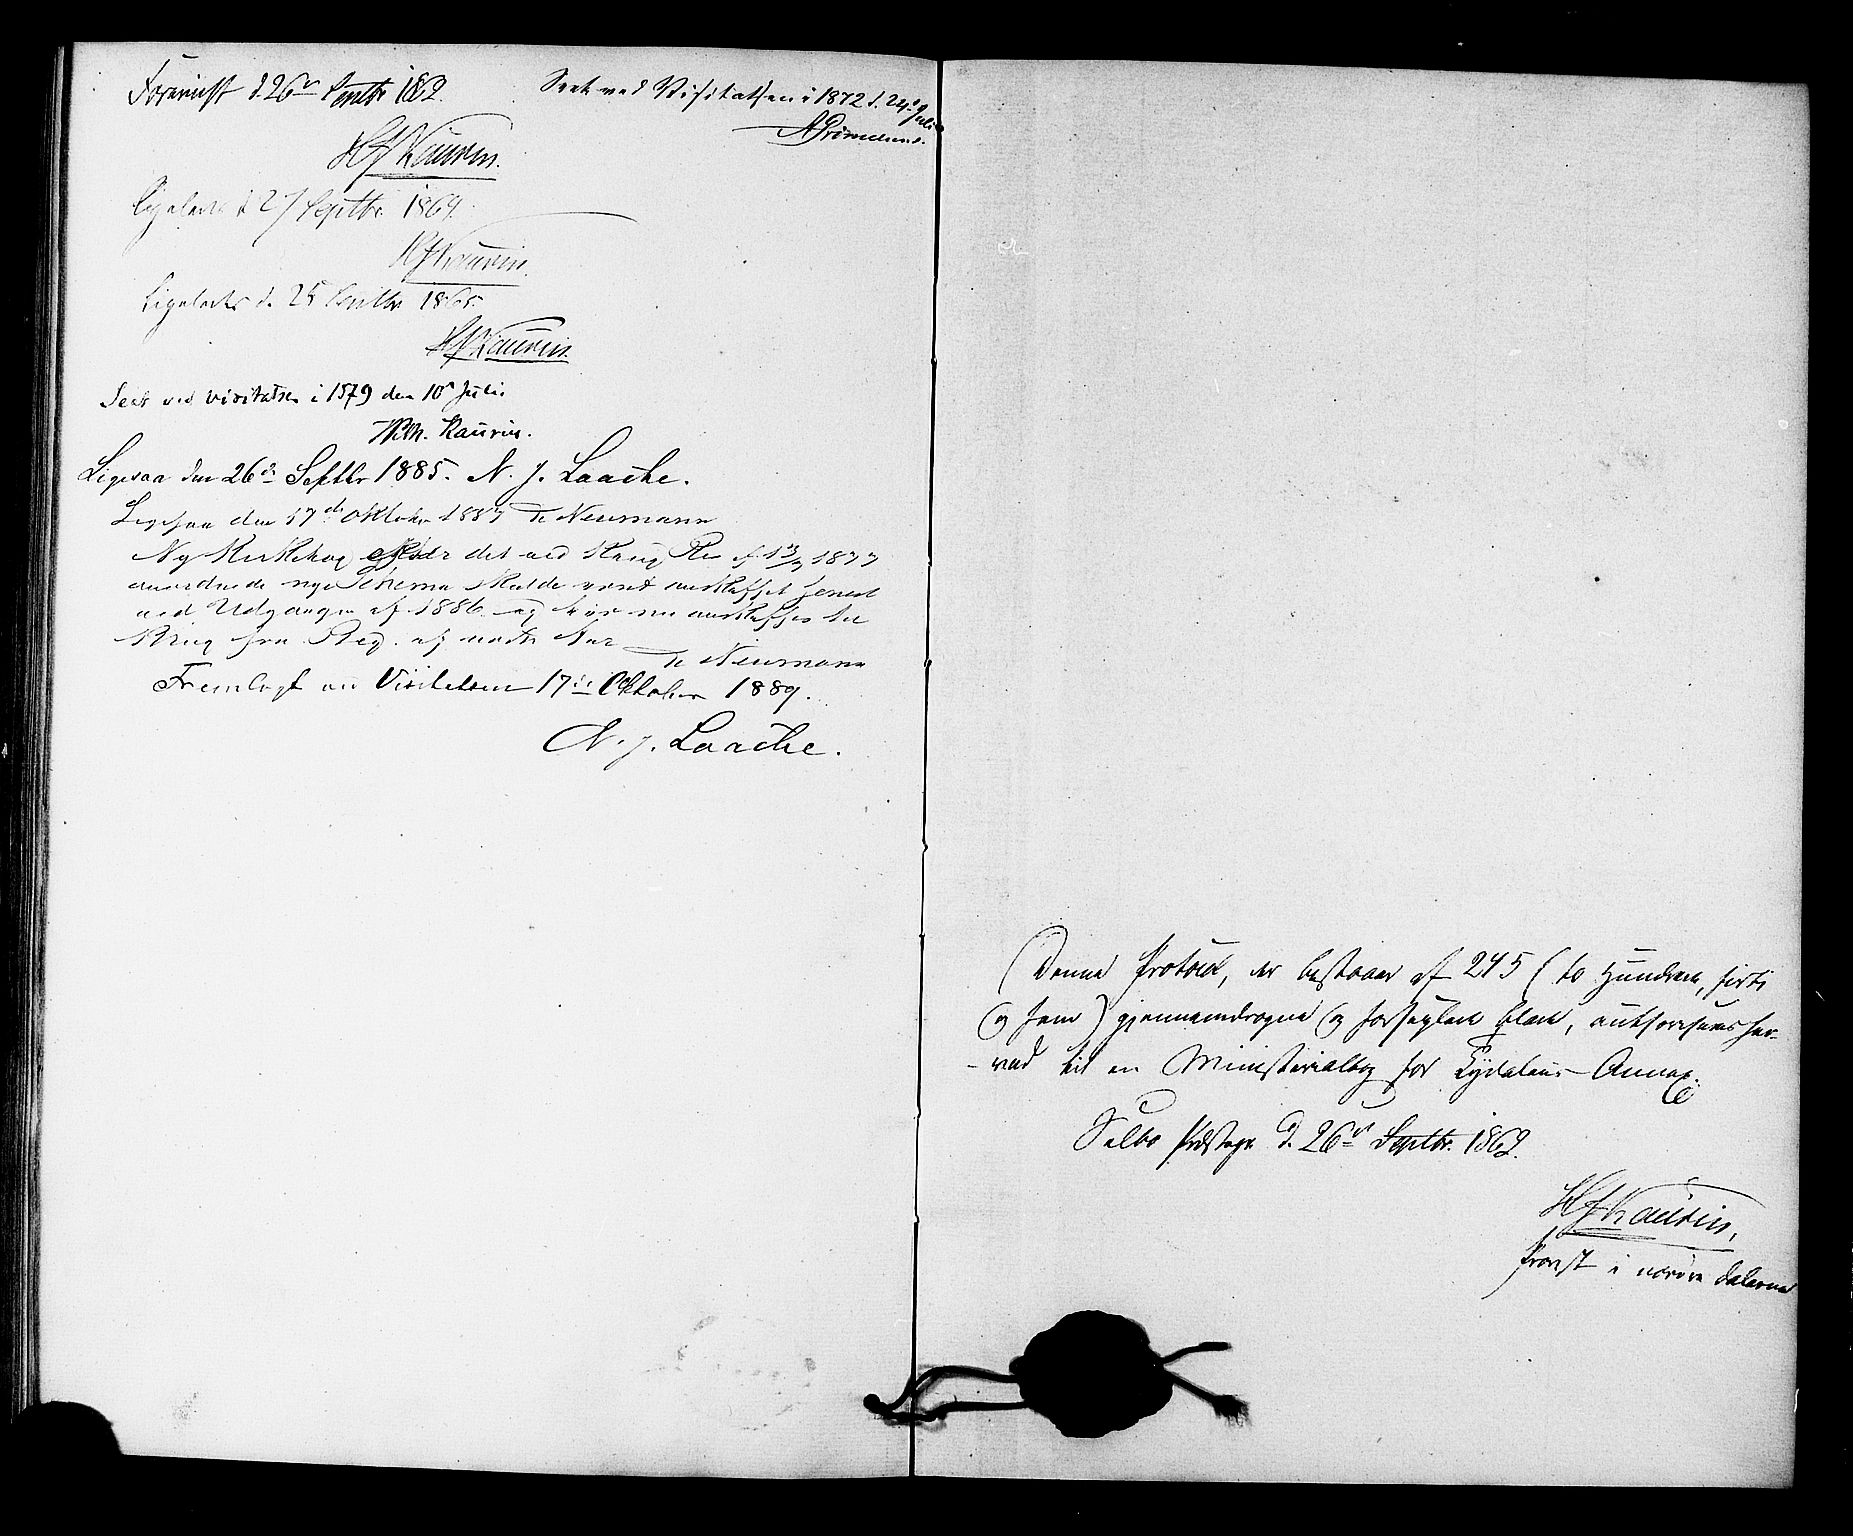 Foreviist d. 26de Septbr 1862.
HJKaurin.
Ligeledes d. 27 Septbr. 1864.
HJKaurin.
Ligeledes d. 25 Septbr 1865.
HJKaurin.
Seet ved Visitatsen i 1872 d. 24de Juli
AGrimelund.
Seet ved Visitatsen i 1879 den 10de Juli
Wilh. Kaurin.
Ligesaa den 26de Septbr 1885. N. J. Laache.
Ligesaa den 17de Oktober 1887 Neumann
Ny Kirkebog efter det ved 1877
anordnede nye Schema skulde været anskaffet senest
ved Udgangen af 1886 og bør nu anskaffes til
Brug fra Beg. af næste Aar
Neumann
Fremlagt ved Visitatsen 17de Oktober 1889.
N. J. Laache.
Denne Protocol, der bestaaer af 245 (to Hundrede, firti
og fem) gjennemdragne og forseglede Blade, authoriseres her-
-ved til en Ministerialbog for Tydalens Annex.
Selbo Præstegd. d. 26de Septbr. 1862.
HJKaurin,
Provst i nordre Dalerne